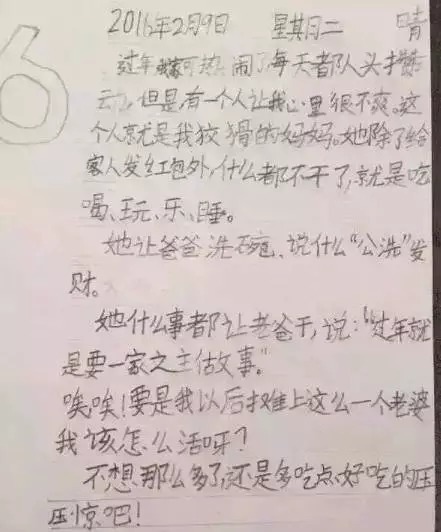 6
2016年2月9日 星期二 晴
过年我家可热闹了每天都人头攒
动,但是有一个人让我心里很不爽。这
个人就是我狡猾的妈妈。她除了给
客人发红包外,什么都不干了,就是吃
喝、玩、乐、睡。
她让爸爸洗碗、说什么“公洗”发
财。
她什么事都让老爸干,说:“过年就
是要一家之主做故事。”
唉唉!要是我以后摊上这么一个老婆
我该怎么活呀?
不想那么多了,还是多吃点好吃的压
压惊吧!